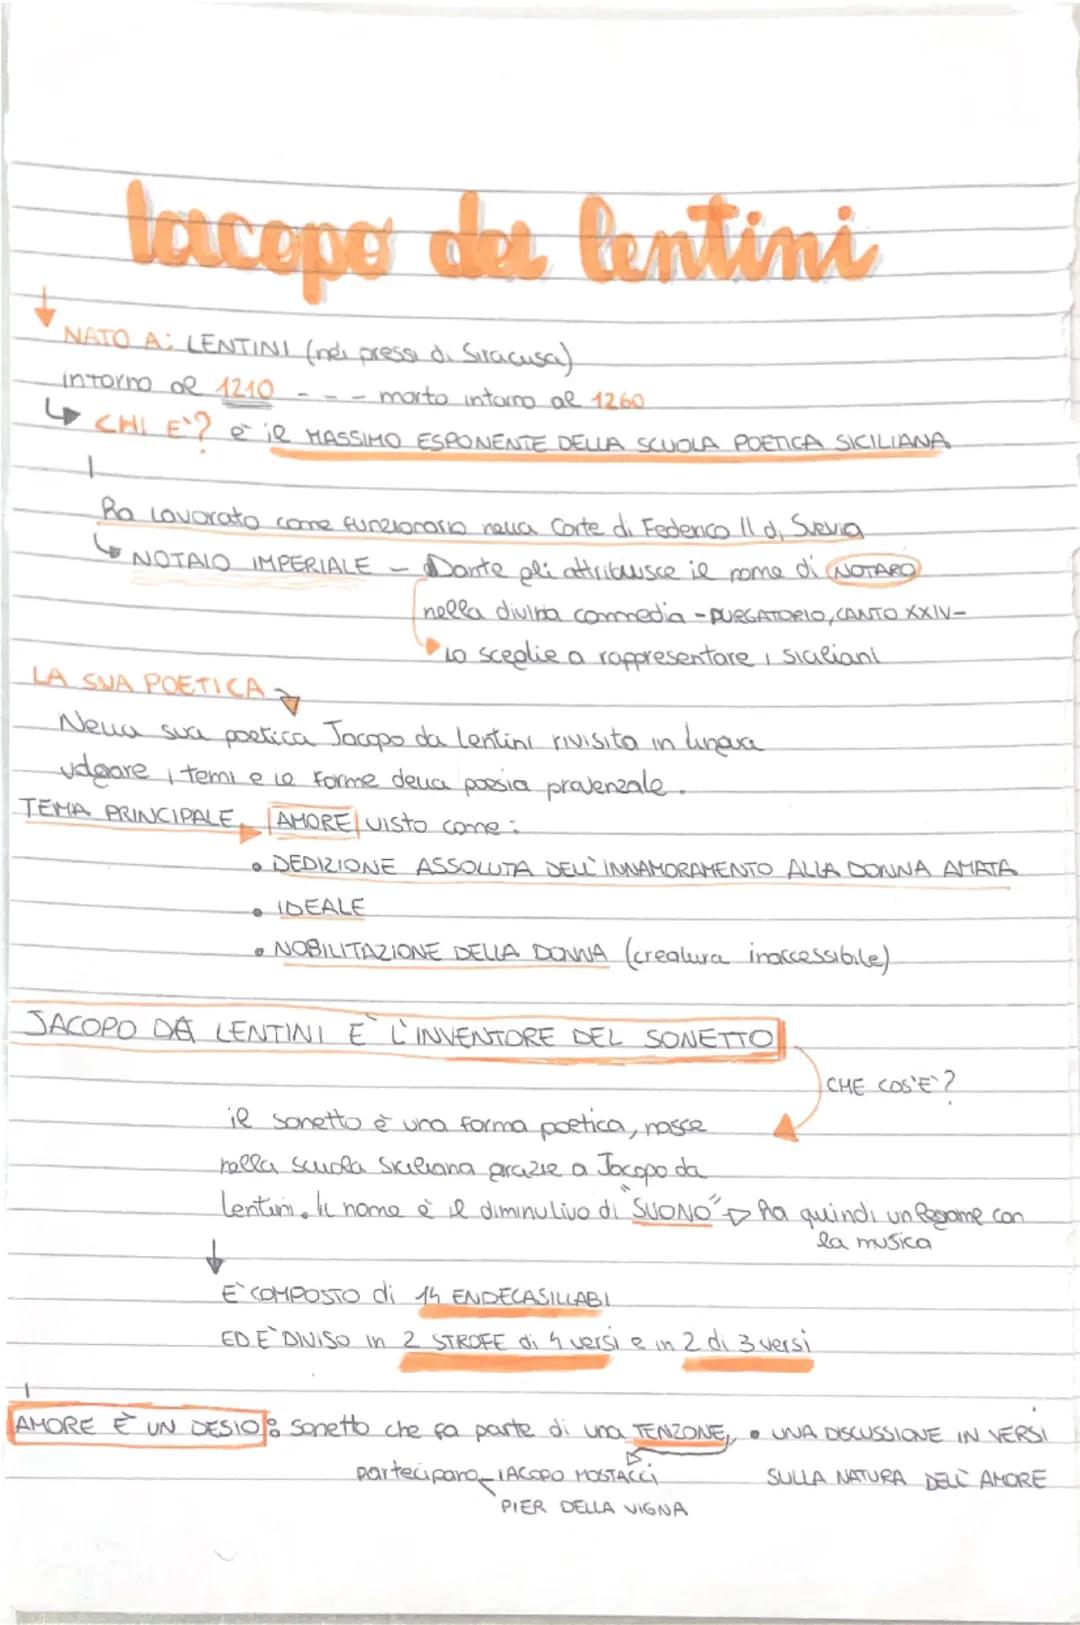 Iacopo da lentini
NATO A: LENTINI (nei pressi di Siracusa)
intorno al 1210 - - - morto intorno al 1260
CHI E'? è il MASSIMO ESPONENTE DELLA SCUOLA POETICA SICILIANA
ha lavorato come funzionario nella Corte di Federico II di Svevia
NOTAIO IMPERIALE - Dante gli attribuisce il nome di NOTARO
nella divina commedia - PURGATORIO, CANTO XXIV-
lo sceglie a rappresentare i siciliani
LA SUA POETICA
Nella sua poetica Jacopo da lentini rivisita in lingua
volgare i temi e le forme della poesia provenzale.
TEMA PRINCIPALE AMORE visto come:
• DEDIZIONE ASSOLUTA DELL'INNAMORAMENTO ALLA DONNA AMATA
• IDEALE
• NOBILITAZIONE DELLA DONNA (creatura inaccessibile)
JACOPO DA LENTINI E' L'INVENTORE DEL SONETTO
CHE COS'E'?
il sonetto è una forma poetica, nasce
nella scuola siciliana grazie a Jacopo da
lentini. Il nome è il diminutivo di "SUONO" ha quindi un legame con
la musica
E' COMPOSTO di 14 ENDECASILLABI
ED E' DIVISO in 2 STROFE di 4 versi e in 2 di 3 versi
AMORE È UN DESIO: sonetto che fa parte di una TENZONE, • UNA DISCUSSIONE IN VERSI
partecipano IACOPO MOSTACCI SULLA NATURA DELL'AMORE
PIER DELLA VIGNA